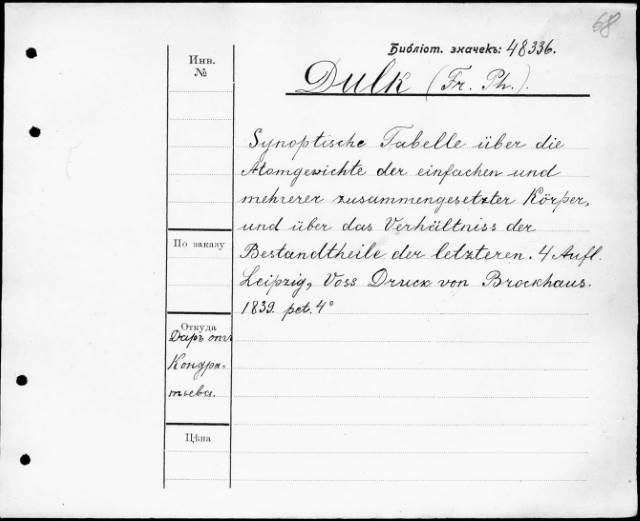 68
Библіот. значекъ: 48336.
Инв.
№
Dulk (Fr. Ph.).
Synoptische Tabelle über die
Atomgewichte der einfachen und
mehrerer zusammengesetzter Körper,
und über das Verhältniss der
Bestandtheile der letzteren. 4 Aufl.
Leipzig, Voss Druck von Brockhaus.
1839. pet. 4°
По заказу
Откуда
Даръ отъ
Кондра-
тьева.
Цѣна